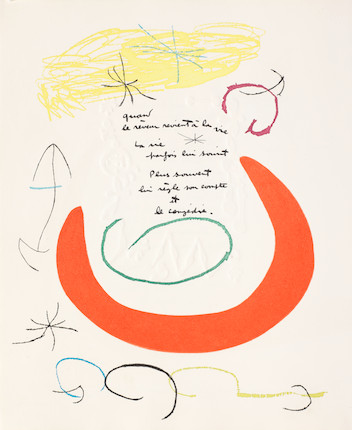 quand
le rêveur revient à la vie
la vie
parfois lui sourit
Plus souvent
lui règle son compte
et
le congédie.